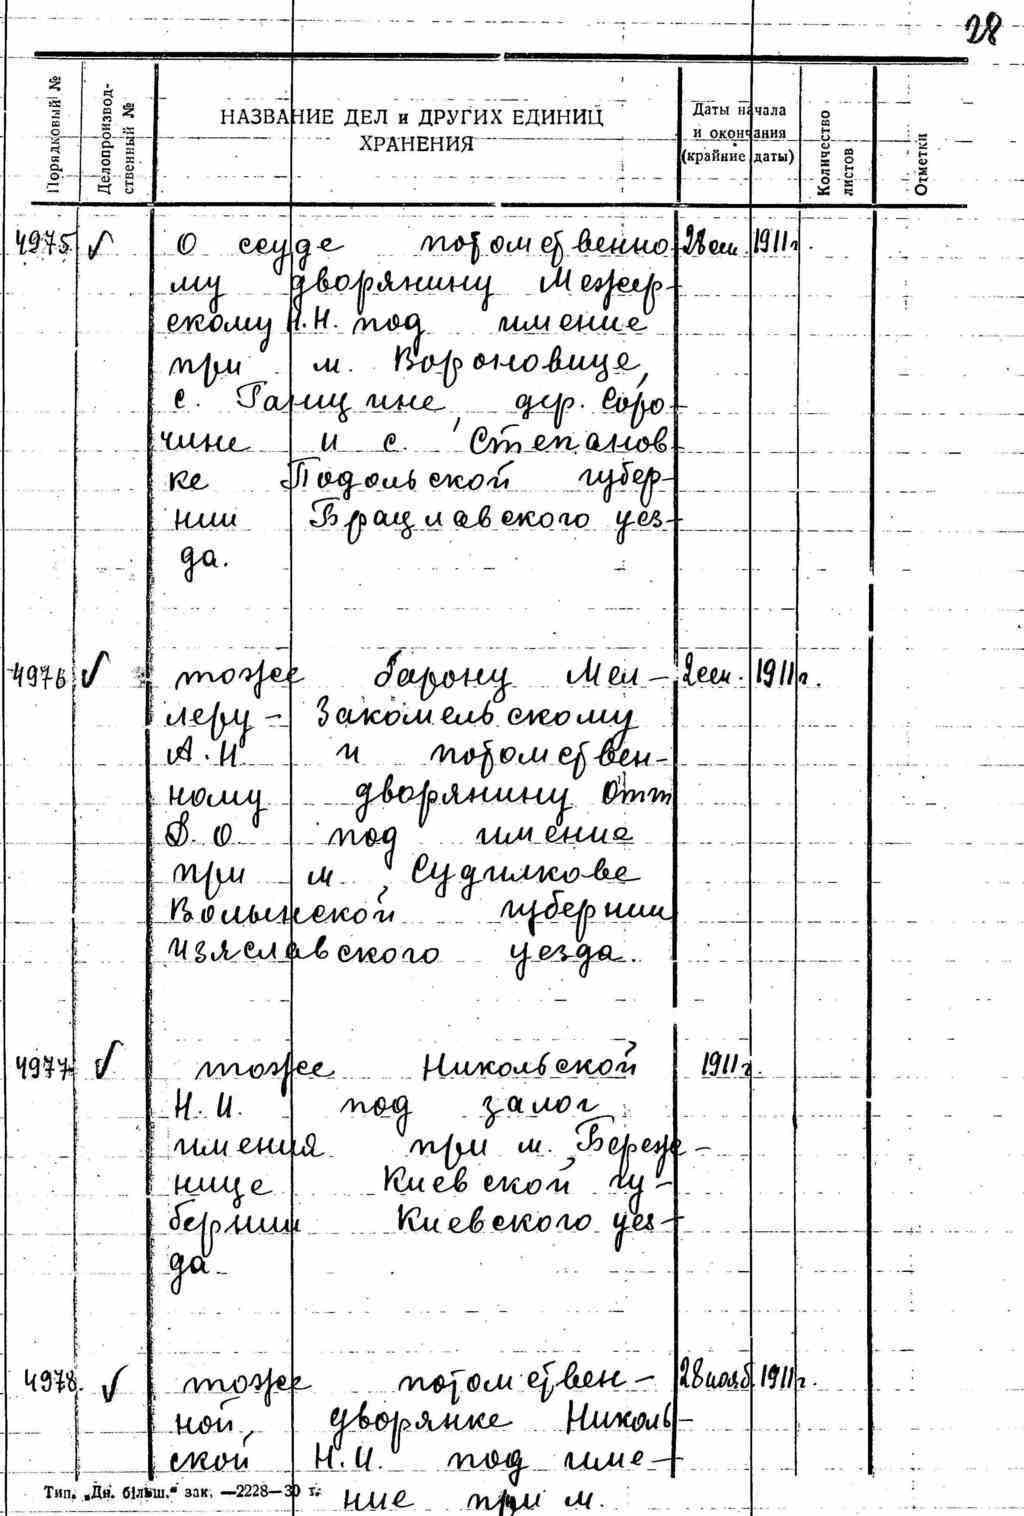 28
Порядковый №
Делопроизвод-
ственный №
НАЗВАНИЕ ДЕЛ и ДРУГИХ ЕДИНИЦ
ХРАНЕНИЯ
Даты начала
и окончания
(крайние даты)
Количество
листов
Отметки
4975 √ О ссуде потомственно 28 сен. 1911 г.
му дворянину Межер-
скому Н.Н. под имение
при м. Вороновице,
с. Ганщине, дер. Соро-
чине и с. Степанов-
ке Подольской губер-
нии Брацлавского уез-
да.
4976 √ тоже барону Мел- 2 сен. 1911 г.
леру - Закомельскому
А.Н и потомствен-
ному дворянину Отт
Д.О под имение
при м. Судилкове
Волынской губернии
Изяславского уезда.
4977 √ тоже Никольской 1911 г.
Н.И. под залог
имения при м.
нице Киевской гу-
бернии Киевского уез-
да
4978. √ тоже потомствен- 28 нояб. 1911 г.
ной, дворянке Николь-
ской Н.И. под име-
ние при м.
Тип. „Дн. більш.“ зак. —2228—30 г.